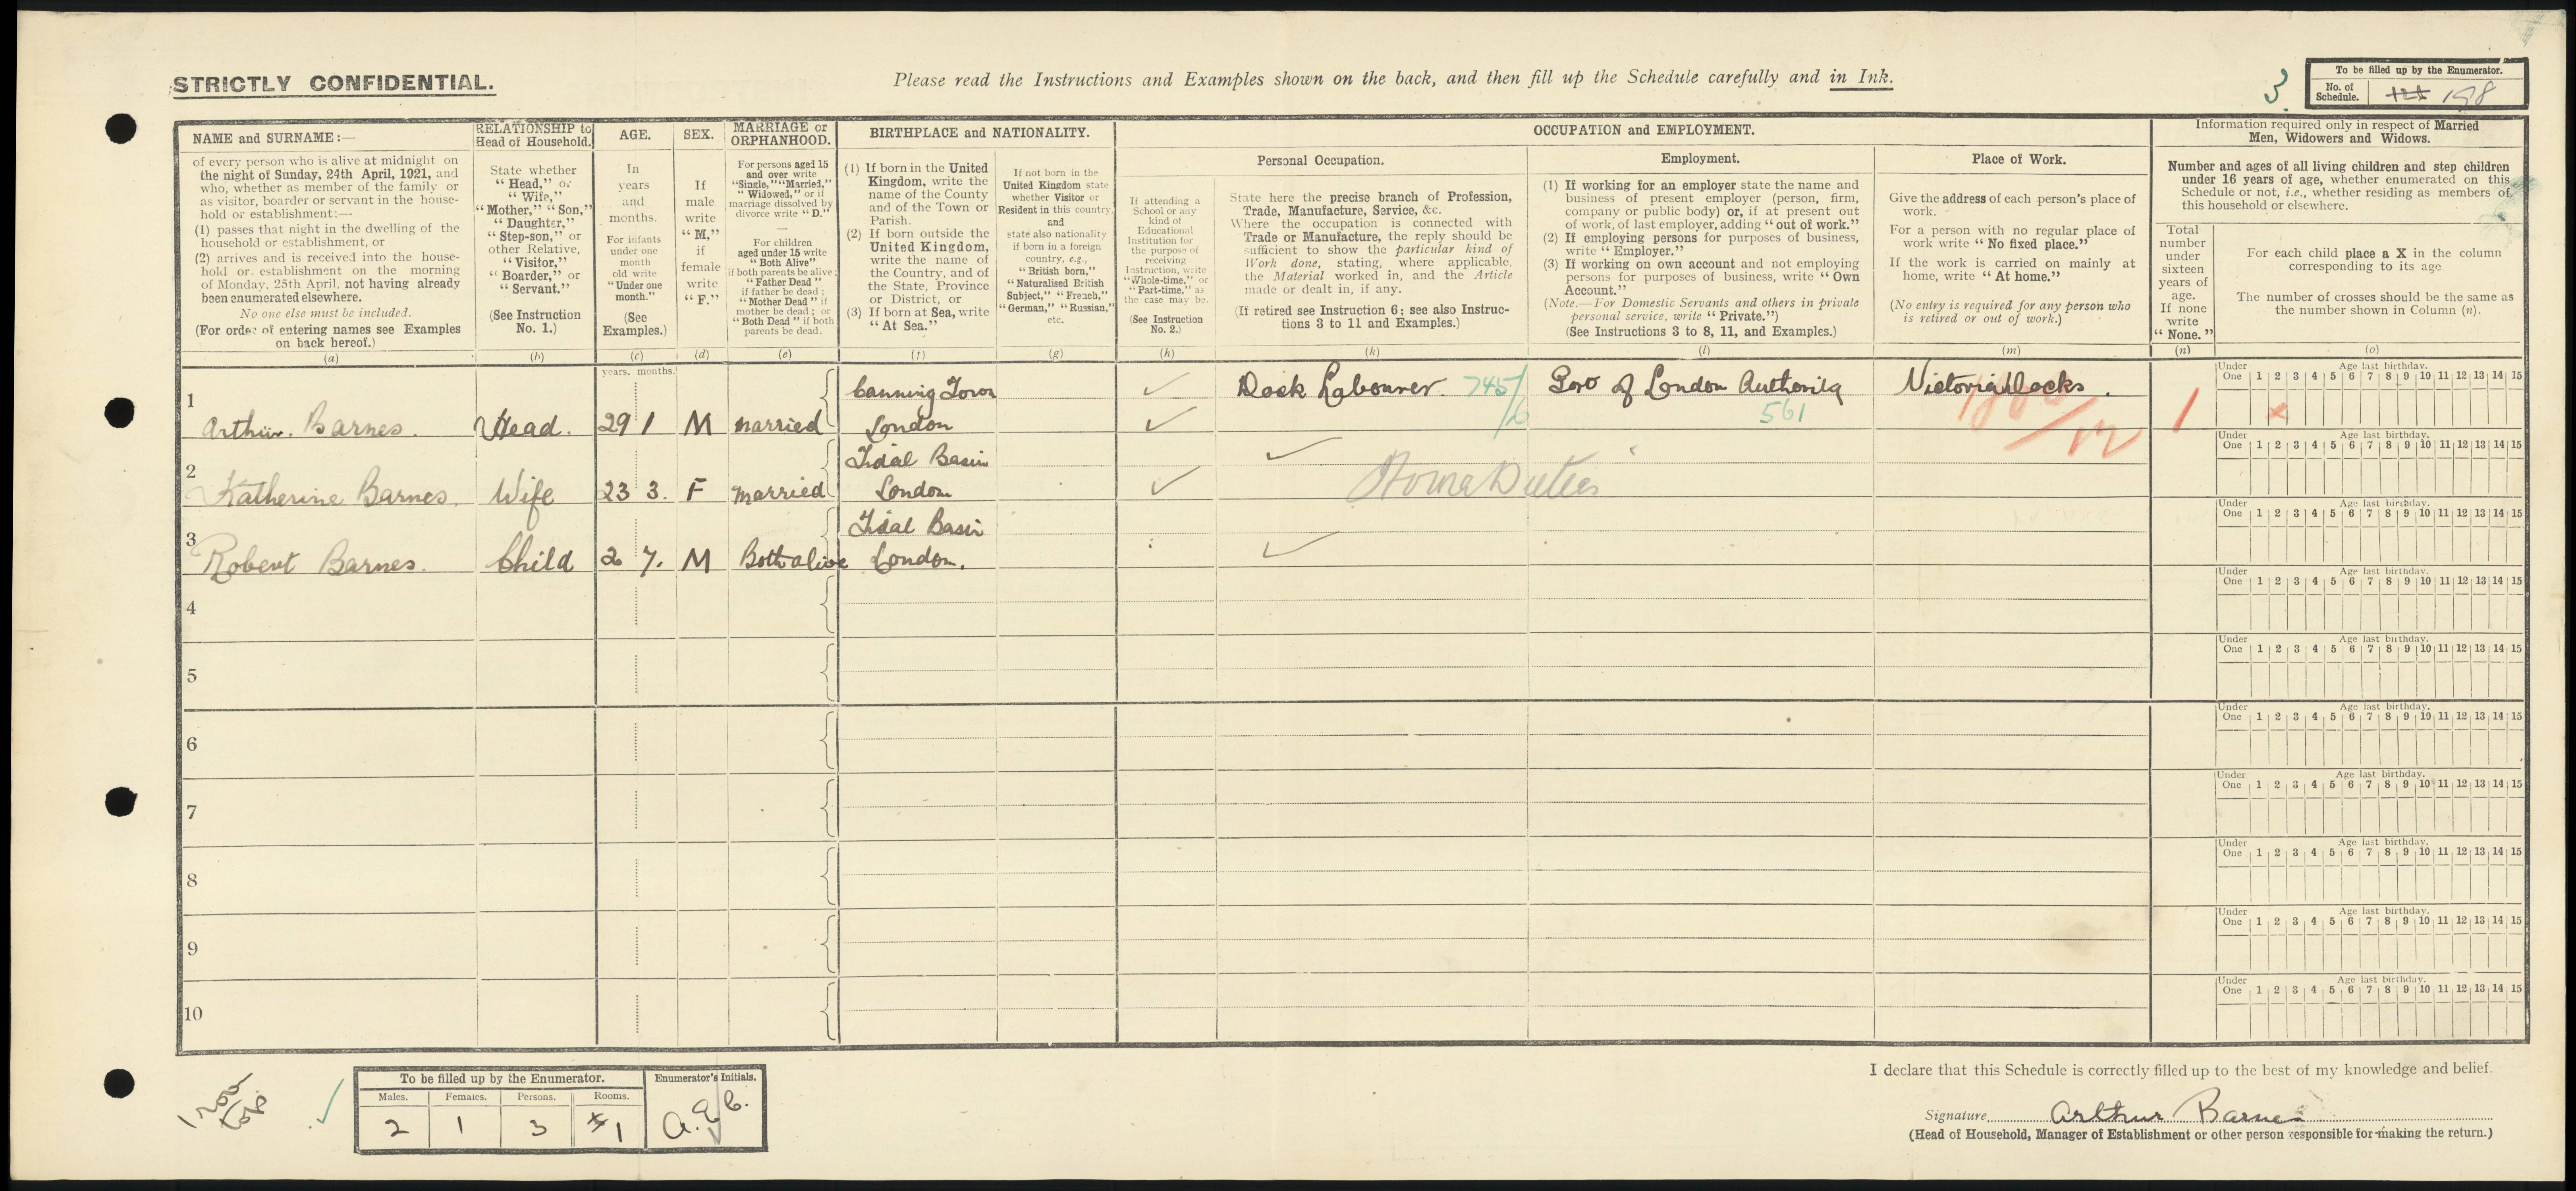 STRICTLY CONFIDENTIAL.
Please read the Instructions and Examples shown on the back, and then fill up the Schedule carefully and in Ink.
3.
To be filled up by the Enumerator.
No. of Schedule. 125 198
NAME and SURNAME:—
of every person who is alive at midnight on
the night of Sunday, 24th April, 1921, and
who, whether as member of the family or
as visitor, boarder or servant in the house-
hold or establishment:—
(1) passes that night in the dwelling of the
household or establishment, or
(2) arrives and is received into the house-
hold or establishment on the morning
of Monday, 25th April, not having already
been enumerated elsewhere.
No one else must be included.
(For order of entering names see Examples
on back hereof.)
(a)
RELATIONSHIP to
Head of Household.
State whether
"Head," or
"Wife,"
"Mother," "Son,"
"Daughter,"
"Step-son," or
other Relative,
"Visitor,"
"Boarder," or
"Servant."
(See Instruction
No. 1.)
(b)
AGE.
In
years
and
months.
For infants
under one
month
old write
"Under one
month."
(See
Examples.)
(c)
SEX.
If
male
write
"M,"
if
female
write
"F."
(d)
MARRIAGE or
ORPHANHOOD.
For persons aged 15
and over write
"Single," "Married,"
"Widowed," or if
marriage dissolved by
divorce write "D."
For children
aged under 15 write
"Both Alive"
if both parents be alive;
"Father Dead"
if father be dead;
"Mother Dead" if
mother be dead; or
"Both Dead" if both
parents be dead.
(e)
BIRTHPLACE and NATIONALITY.
(1) If born in the United
Kingdom, write the
name of the County
and of the Town or
Parish.
(2) If born outside the
United Kingdom,
write the name of
the Country, and of
the State, Province
or District, or
(3) If born at Sea, write
"At Sea."
(f)
If not born in the
United Kingdom state
whether Visitor or
Resident in this country,
and
state also nationality
if born in a foreign
country, e.g.,
"British born,"
"Naturalised British
Subject," "French,"
"German," "Russian,"
etc.
(g)
OCCUPATION and EMPLOYMENT.
If attending a
School or any
kind of
Educational
Institution for
the purpose of
receiving
Instruction, write
"Whole-time," or
"Part-time," as
the case may be.
(See Instruction
No. 2.)
(h)
Personal Occupation.
State here the precise branch of Profession,
Trade, Manufacture, Service, &c.
Where the occupation is connected with
Trade or Manufacture, the reply should be
sufficient to show the particular kind of
Work done, stating, where applicable,
the Material worked in, and the Article
made or dealt in, if any.
(If retired see Instruction 6; see also Instruc-
tions 3 to 11 and Examples.)
(k)
Employment.
(1) If working for an employer state the name and
business of present employer (person, firm,
company or public body) or, if at present out
of work, of last employer, adding "out of work."
(2) If employing persons for purposes of business,
write "Employer."
(3) If working on own account and not employing
persons for purposes of business, write "Own
Account."
(Note.—For Domestic Servants and others in private
personal service, write "Private.")
(See Instructions 3 to 8, 11, and Examples.)
(l)
Place of Work.
Give the address of each person's place of
work.
For a person with no regular place of
work write "No fixed place."
If the work is carried on mainly at
home, write "At home."
(No entry is required for any person who
is retired or out of work.)
(m)
Information required only in respect of Married
Men, Widowers and Widows.
Number and ages of all living children and step children
under 16 years of age, whether enumerated on this
Schedule or not, i.e., whether residing as members of
this household or elsewhere.
Total
number
under
sixteen
years of
age.
If none
write
"None."
(n)
For each child place a X in the column
corresponding to its age
The number of crosses should be the same as
the number shown in Column (n).
(o)
years. months.
1 Arthur. Barnes. Head. 29 1 M married Canning Town London Dock Labourer. 745/6 Port of London Authority 561 Victoria Docks. 1 x
Under One 1 2 3 4 5 6 7 8 9 10 11 12 13 14 15 Age last birthday.
2 Katherine Barnes. Wife 23 3. F married Tidal Basin London Home Duties
Under One 1 2 3 4 5 6 7 8 9 10 11 12 13 14 15 Age last birthday.
3 Robert Barnes. Child 2 7. M Both alive Tidal Basin London.
Under One 1 2 3 4 5 6 7 8 9 10 11 12 13 14 15 Age last birthday.
4
Under One 1 2 3 4 5 6 7 8 9 10 11 12 13 14 15 Age last birthday.
5
Under One 1 2 3 4 5 6 7 8 9 10 11 12 13 14 15 Age last birthday.
6
Under One 1 2 3 4 5 6 7 8 9 10 11 12 13 14 15 Age last birthday.
7
Under One 1 2 3 4 5 6 7 8 9 10 11 12 13 14 15 Age last birthday.
8
Under One 1 2 3 4 5 6 7 8 9 10 11 12 13 14 15 Age last birthday.
9
Under One 1 2 3 4 5 6 7 8 9 10 11 12 13 14 15 Age last birthday.
10
Under One 1 2 3 4 5 6 7 8 9 10 11 12 13 14 15 Age last birthday.
To be filled up by the Enumerator.
Males. Females. Persons. Rooms.
2 1 3 1
Enumerator's Initials.
I declare that this Schedule is correctly filled up to the best of my knowledge and belief.
Signature Arthur Barnes
(Head of Household, Manager of Establishment or other person responsible for making the return.)